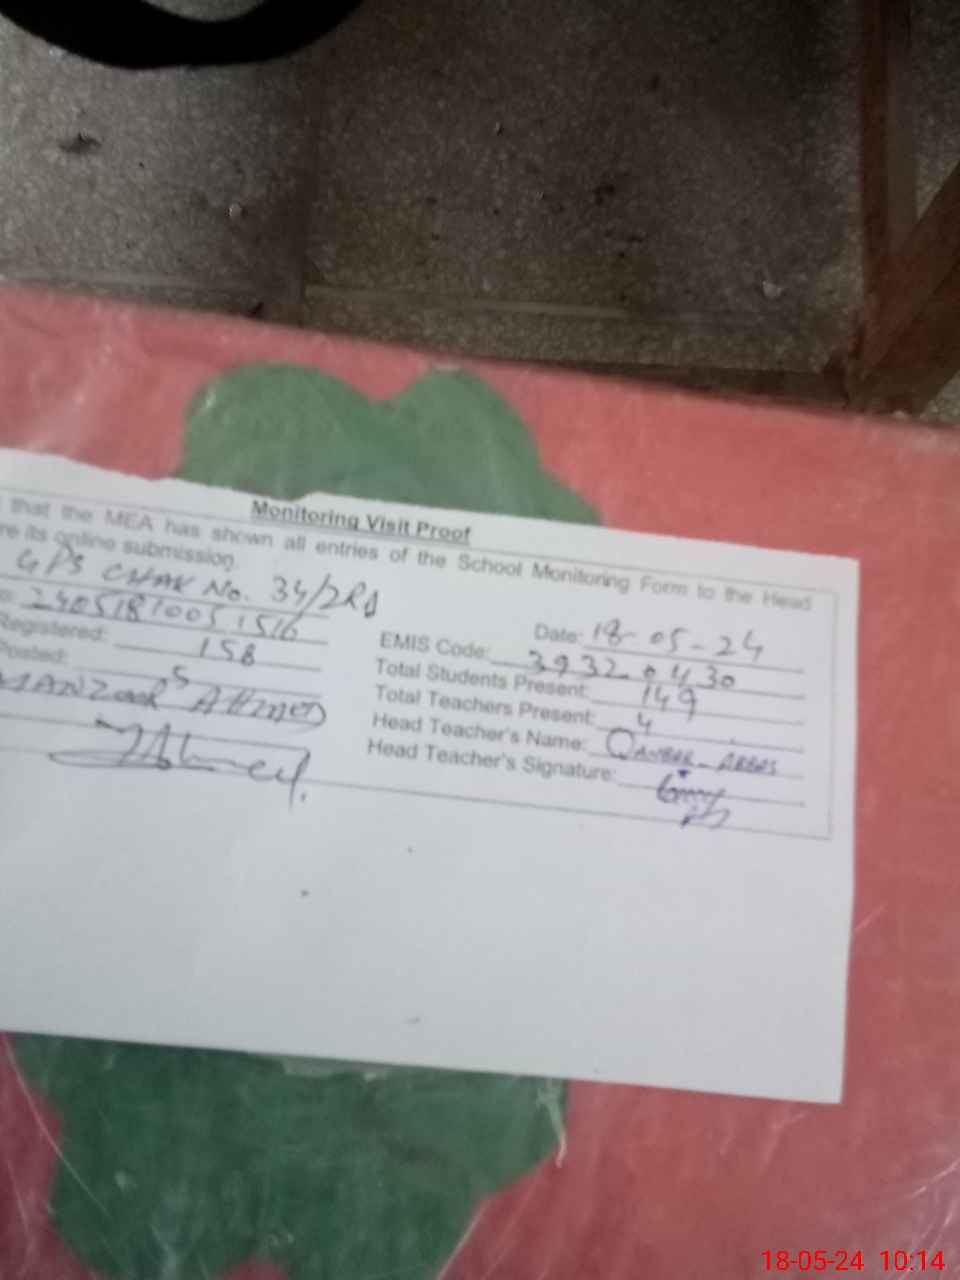 Monitoring Visit Proof
that the MEA has shown all entries of the School Monitoring Form to the Head
re its online submission.
GPS CHAK No. 34/2RA
Date: 18-05-24
24051810051516
EMIS Code: 39320430
Registered: 158
Total Students Present: 149
Posted: 5
Total Teachers Present: 4
MANZOOR AHMED
Head Teacher's Name: QAMBAR ABBAS
Head Teacher's Signature:
18-05-24 10:14